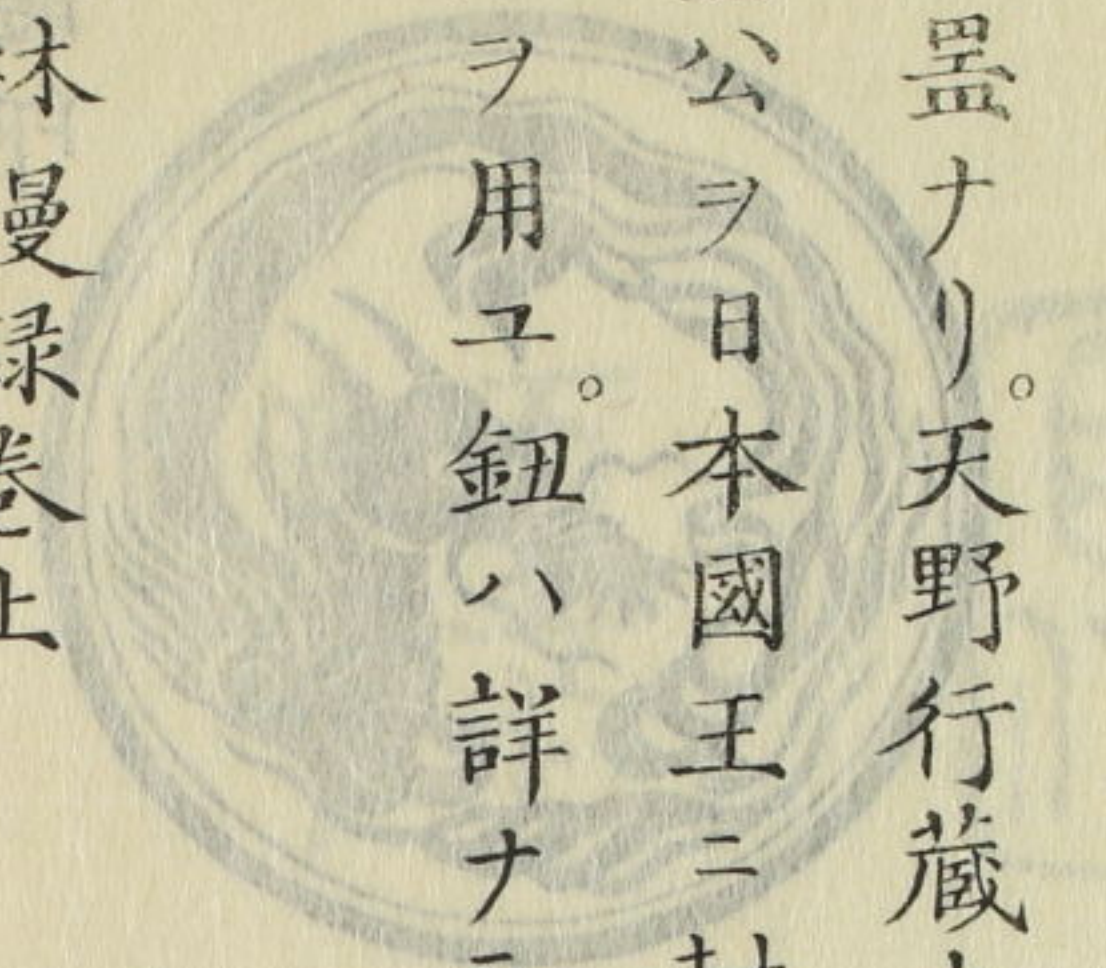 ナリ。天野行蔵
公ヲ日本國王ニ
ヲ用ユ。鈕ハ詳ナ
林漫録巻上